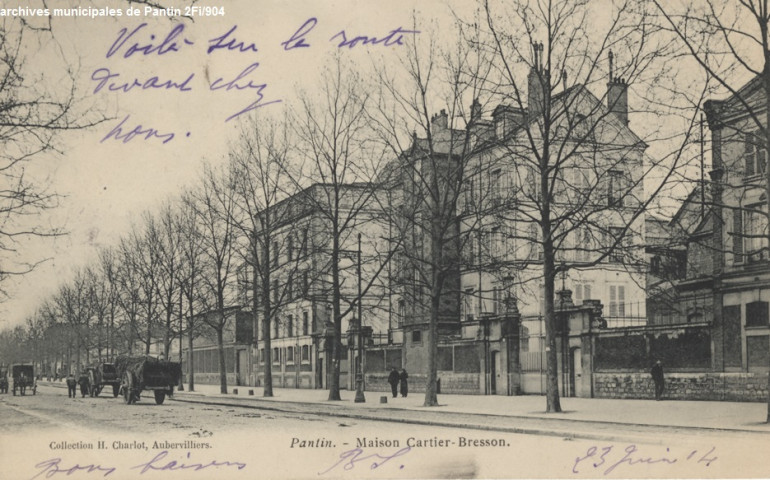 archives municipales de Pantin 2Fi/904
Voilà sur la route
devant chez
nous.
Collection H. Charlot, Aubervilliers.
Pantin. - Maison Cartier-Bresson.
Bons baisers
23 Juin 14